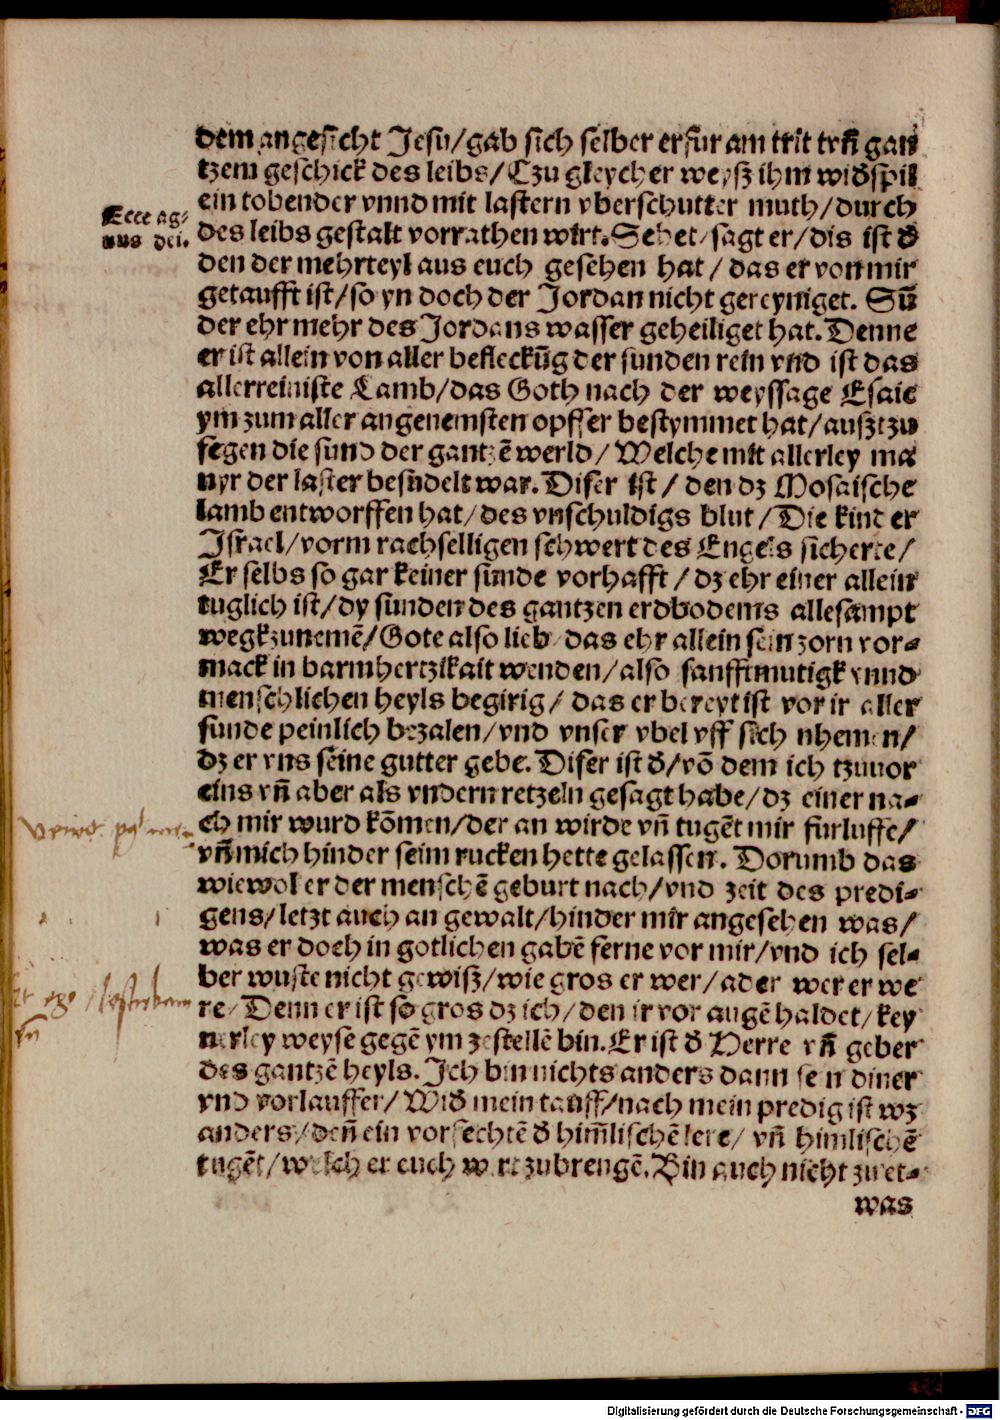 dem angesicht Jesu/gab sich selber erfur am trit vñ gan
tzem geschick des leibs/Czu gleycher weysz ihm widspil
ein tobender vnnd mit lastern vberschutter muth/durch
Ecce ag-
nus dei.
des leibs gestalt vorrathen wirt. Sehet/sagt er/dis ist d̕
den der mehrteyl aus euch gesehen hat/das er von mir
getaufft ist/so yn doch der Jordan nicht gereyniget. Sū
der ehr mehr des Jordans wasser geheiliget hat. Denne
er ist allein von aller befleckūg der sunden rein vnd ist das
allerreiniste Lamb/das Goth nach der weyssage Esaie
ym zum aller angenemsten opffer bestymmet hat/auszt zu
fegen die sund der gantzē werld/Welche mit allerley ma
nyr der laster besudelt war. Diser ist/den dz Mosaische
lamb entworffen hat/des vnschuldigs blut/Die kinder
Israel/vorm rachselligen schwert des Engels sicherte/
Er selbs so gar keiner sunde vorhafft/dz ehr einer allein
tuglich ist/dy sunden des gantzen erdbodems allesampt
wegkzunemē/Gote also lieb/das ehr allein sein zorn vor-
mack in barmhertzikait wenden/also sanfftmutigk vnnd
menschlichen heyls begirig/das er bereyt ist vor ir aller
sunde peinlich bezalen/vnd vnser vbel vff sich nhemen/
dz er vns seine gutter gebe. Diser ist d̕/vō dem ich tzuuor
eins vñ aber als vndern retzeln gesagt habe/dz einer na-
ch mir wurd kōmen/der an wirde vñ tugēt mir furluffe/
vñ mich hinder seim rucken hette gelassen. Dorumb das
wiewol er der menschē geburt nach/vnd zeit des predi-
gens/letzt auch an gewalt/hinder mir angesehen was/
was er doch in gotlichen gabē ferne vor mir/vnd ich sel-
ber wuste nicht gewisz/wie gros er wer/ader wer er we
re/Denn er ist so gros dz ich/den ir vor augē haldet/key
nerley weyse gegē ym zestellē bin. Er ist d̕ Herre vñ geber
des gantzē heyls. Jch bin nichts anders dann sein diner
vnd vorlauffer/Wid̕ mein tauff/nach mein predig ist wz
anders/deñ ein vorfechtē d̕ him̄lischē lere/vñ himlischē
tugēt/welch er euch wirt zubrengē. Bin auch nicht zu et-
was
Digitalisierung gefördert durch die Deutsche Forschungsgemeinschaft - DFG